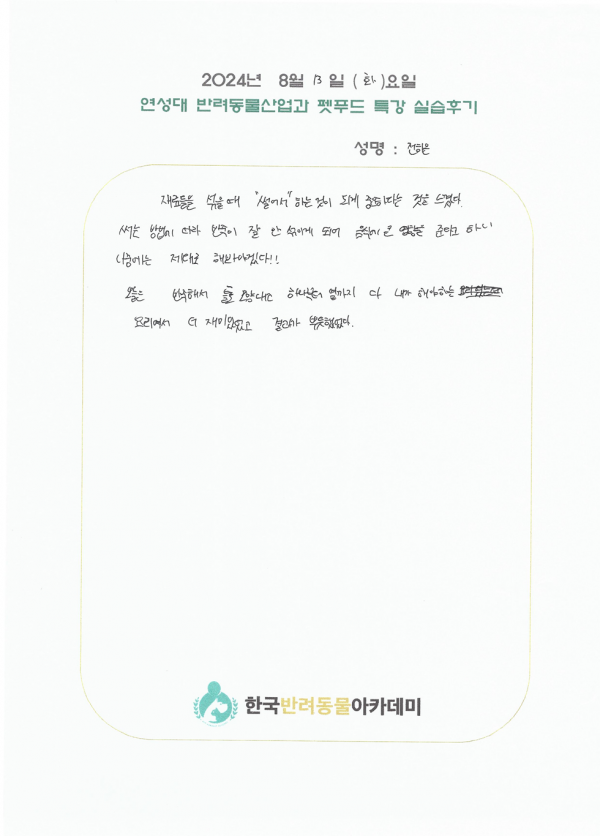 2024년 8월 13일 (화)요일
연성대 반려동물산업과 펫푸드 특강 실습후기
성명 : 전하은
재료들을 섞을 때 "썰어서" 하는것이 되게 중요하다는 것을 느꼈다.
써는 방법에 따라 반죽이 잘 안 섞이게 되어 음식에 영향을 준다고 하니
나중에는 제대로 해봐야겠다!!
오늘은 반죽해서 모양내고 하나부터 열까지 다 내가 해야하는
요리여서 더 재미있었고 결과가 뿌듯했었다.
한국반려동물아카데미